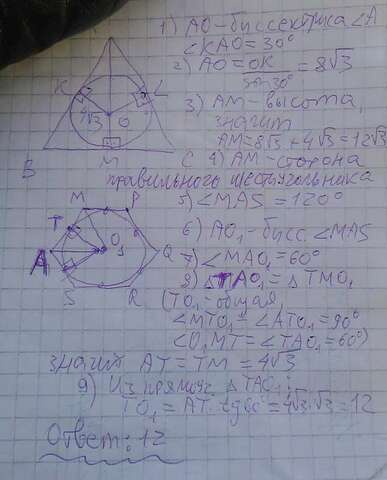 1) AO-биссектриса ∠A
∠KAO=30°
2) AO=OK/sin30°=8√3
3) AM-высота,
значит
AM=8√3+4√3=12√3
K
L
4√3
O
B
M
C
4) AM-сторона
правильного шестиугольника
5) ∠MAS=120°
6) AO₁-бисс. ∠MAS
7) ∠MAO₁=60°
8) △TAO₁=△TMO₁
(TO₁-общая,
∠MTO₁=∠ATO₁=90°
∠O₁MT=∠TAO₁=60°)
M
P
T
O₁
A
Q
S
R
значит AT=TM=4√3
9) Из прямоуг △TAO₁:
TO₁=AT·tg60°=4√3·√3=12
Ответ: 12